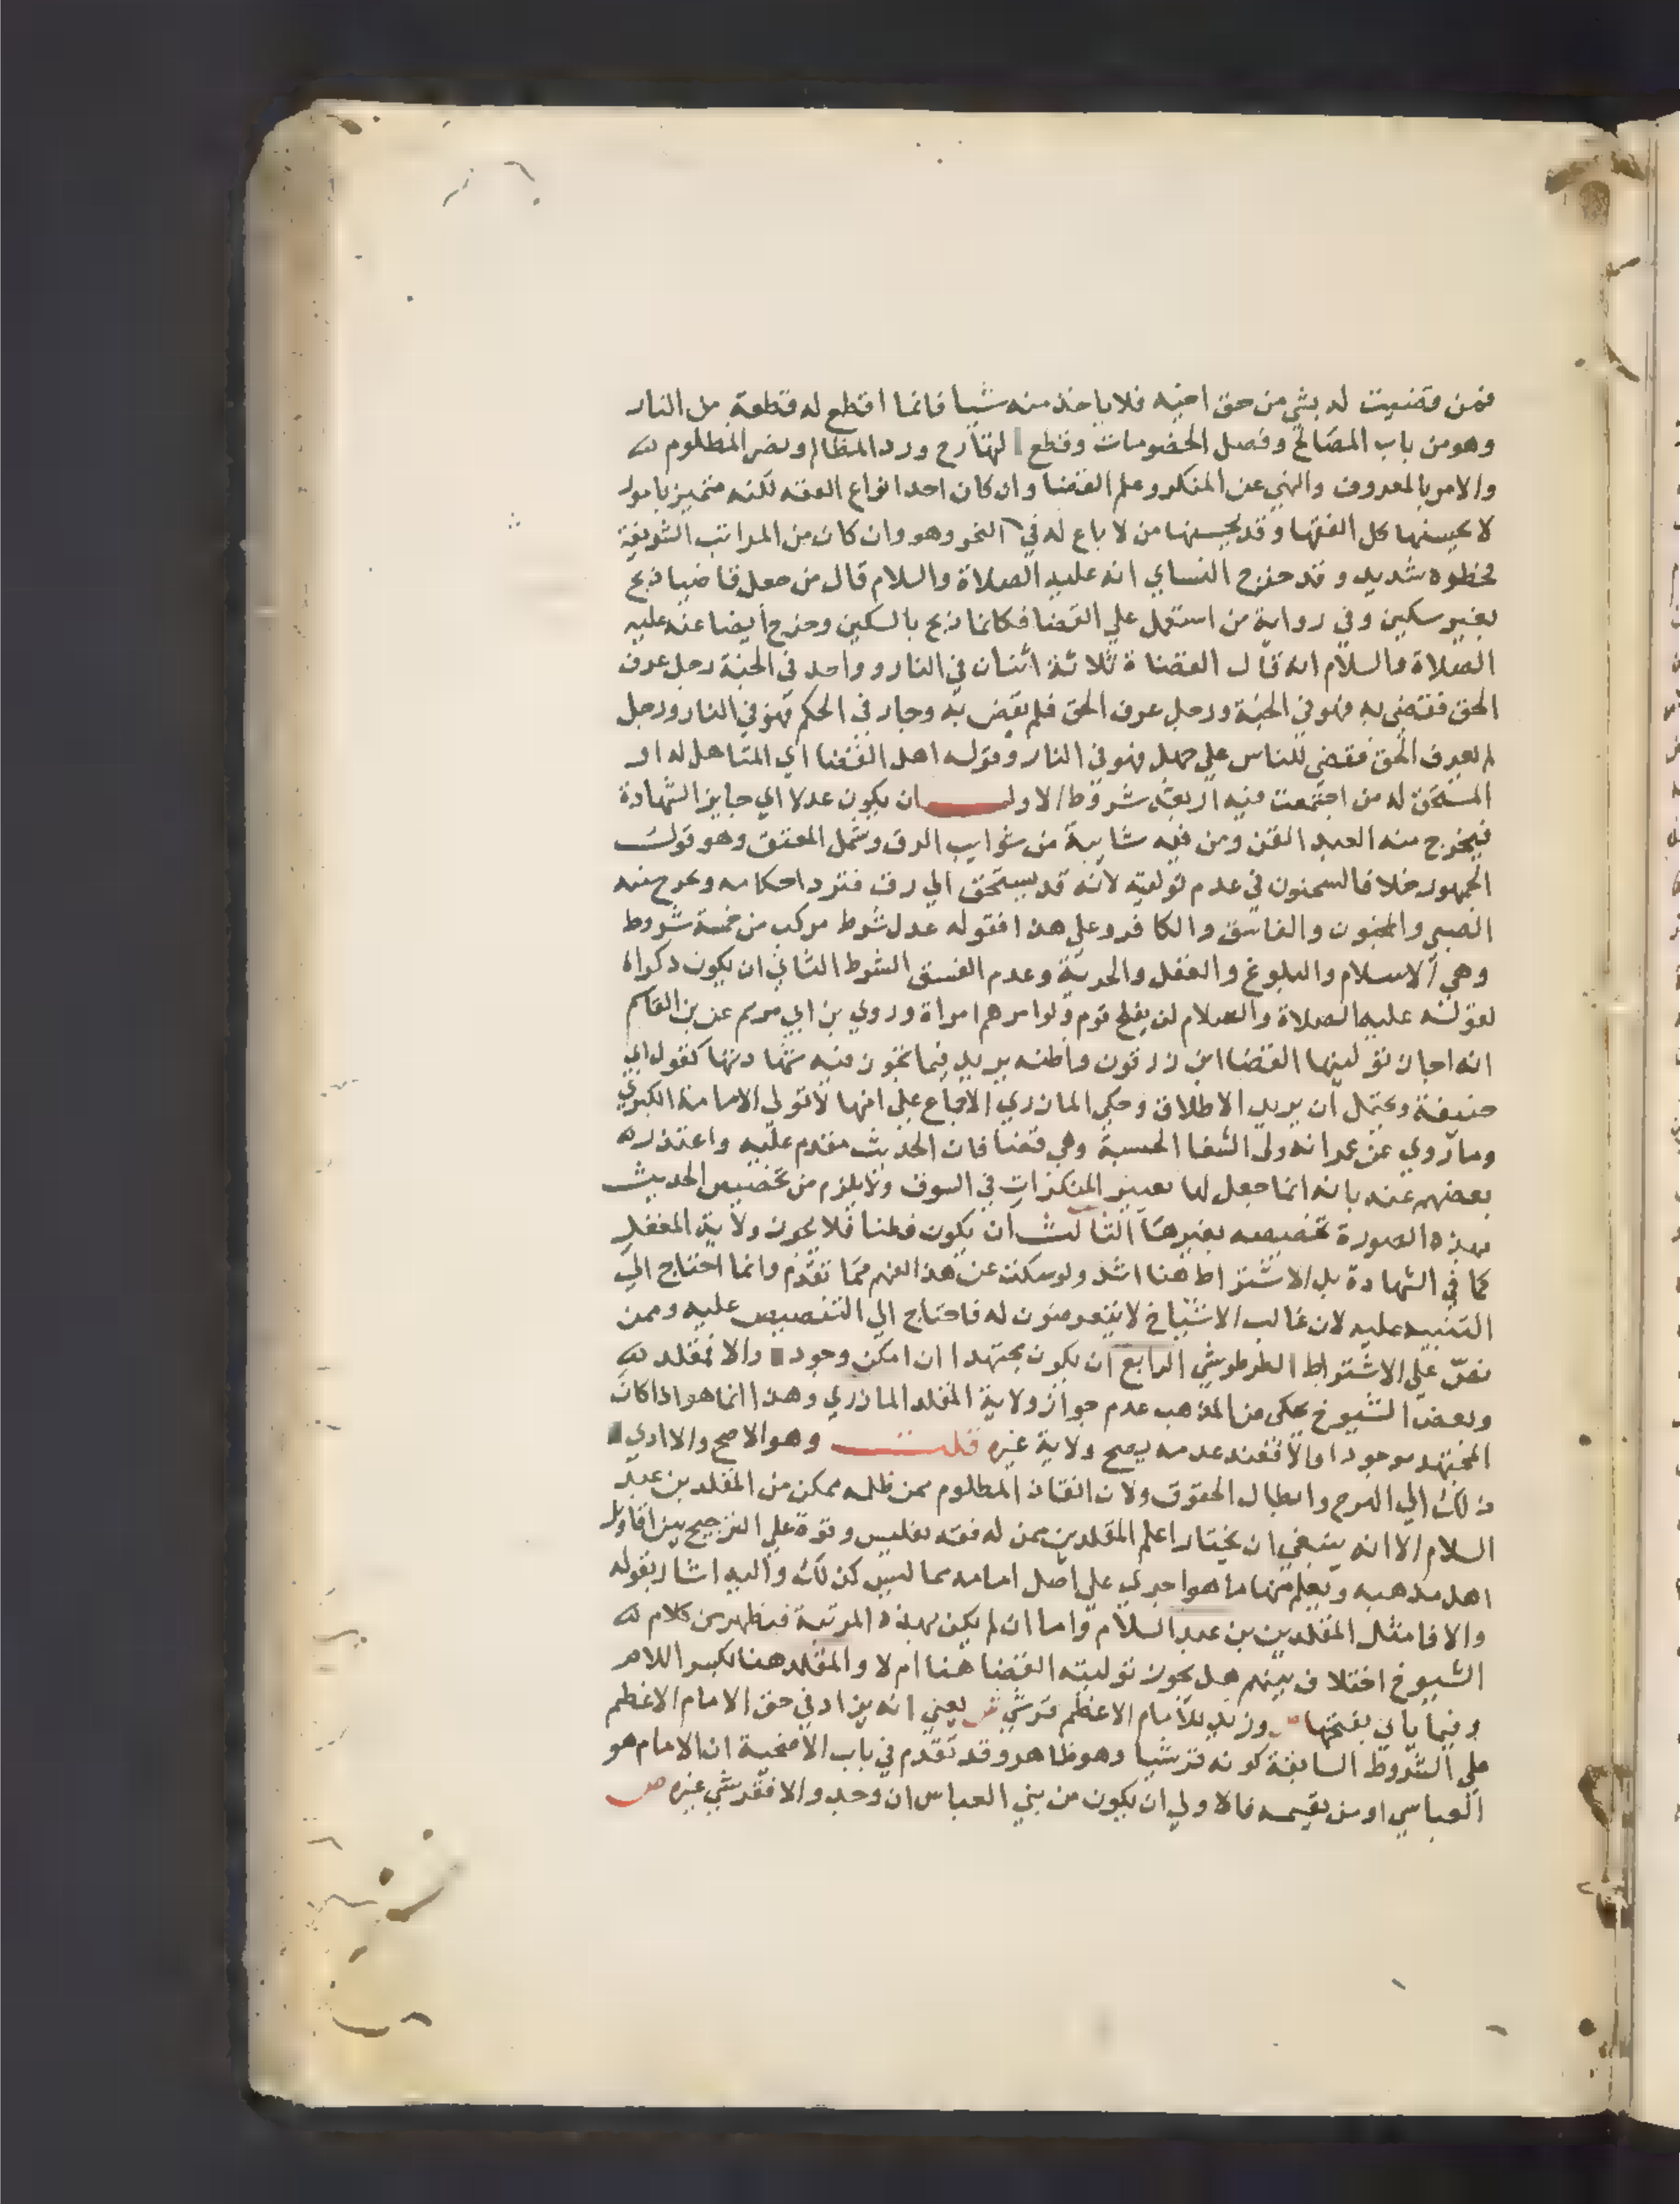 فمن قضيت له بشي من حق اخيه فلا ياخذ منه شيا فانما اقطع له قطعة من النار
وهو من باب المصالح وفصل الخصومات وقطع التهارج ورد المظالم ونصر المظلوم
والامر بالمعروف والنهي عن المنكر وعلم القضا وان كان احد انواع الفقه لكنه متميز بامور
لا يحسنها كل الفقها وقد يحسنها من لا باع له في النحو وهو وان كان من المراتب الشريفة
فخطره شديد وقد خرج النساي انه عليه الصلاة والسلام قال من جعل قاضيا ذبح
بغير سكين وفي رواية من استعمل علي القضا فكانما ذبح بالسكين وخرج أيضا عنه عليه
الصلاة والسلام انه قال القضاة ثلاثة اثنان في النار وواحد في الجنة رجل عرف
الحق فقضي به فهو في الجنة ورجل عرف الحق فلم يقض به وجار في الحكم فهو في النار ورجل
لم يعرف الحق فقضي للناس علي جهل فهو في النار وقوله اهل القضا اي المتاهل له او
المستحق له من اجتمعت فيه اربعة شروط الاول ان يكون عدلا اي جايز الشهادة
فيخرج منه العبد القن ومن فيه شايبة من شوايب الرق وشمل المعتق وهو قول
الجمهور خلافا لسحنون في عدم توليته لانه قد يستحق الي رق فترد احكامه ويخرج منه
الصبي والمجنون والفاسق والكافر وعلي هذا فقوله عدل شرط مركب من خمسة شروط
وهي الاسلام والبلوغ والعقل والحرية وعدم الفسق الشرط الثاني ان يكون ذكرا
لقوله عليه الصلاة والسلام لن يفلح قوم ولوا امرهم امراة وروي بن ابي مريم عن بن القاسم
انه اجاز توليتها القضا ابن زرقون واظنه يريد فيما تجوز فيه شهادتها كقول ابي
حنيفة ويحتمل ان يريد الاطلاق وحكي المازري الاجماع علي انها لا تولي الامامة الكبري
وما روي عن عمر انه ولي الشفا الحسبة وهي قضا فان الحديث مقدم عليه واعتذر
بعضهم عنه بانه انما جعل لها تغيير المنكرات في السوق ولا يلزم من تخصيص الحديث
بهذه الصورة تخصيصه بغيرها الثالث ان يكون فطنا فلا يجوز ولاية المغفل
كما في الشهادة بل الاشتراط هنا اشد ولو سكت عن هذا لفهم مما تقدم وانما احتاج الي
التنبيه عليه لان غالب الاشياخ لا يتعرضون له فاحتاج الي التنصيص عليه وممن
نص علي الاشتراط الطرطوشي الرابع ان يكون مجتهدا ان امكن وجود والا فمقلد
وبعض الشيوخ يحكي من المذهب عدم جواز ولاية المقلد المازري وهذا انما هو اذا كان
المجتهد موجودا والا فعند عدمه يصح ولاية غيره قلت وهو الاصح والا ادي
ذلك الي الهرج وابطال الحقوق ولان انقاذ المظلوم ممن ظلمه ممكن من المقلد بن عبد
السلام الا انه ينبغي ان يختار اعلم المقلدين ممن له فقه نفيس وقوة علي الترجيح بين اقاويل
اهل مذهبه ويعلم منها ما هو اجري علي اصل امامه مما ليس كذلك واليه اشار بقوله
والا فامثل المقلدين بن عبد السلام واما ان لم يكن بهذه المرتبة فيظهر من كلام
الشيوخ اختلاف بينهم هل يجوز توليته القضا هنا ام لا والمقلد هنا بكسر اللام
وفيما ياتي بفتحها ص وزيد للامام الاعظم قرشي ش يعني انه يزاد في حق الامام الاعظم
علي الشروط السابقة كونه قرشيا وهو ظاهر وقد تقدم في باب الاضحية ان الامام هو
العباسي او من يقيمه فالاولي ان يكون من بني العباس ان وجد والا فقرشي غيره ص